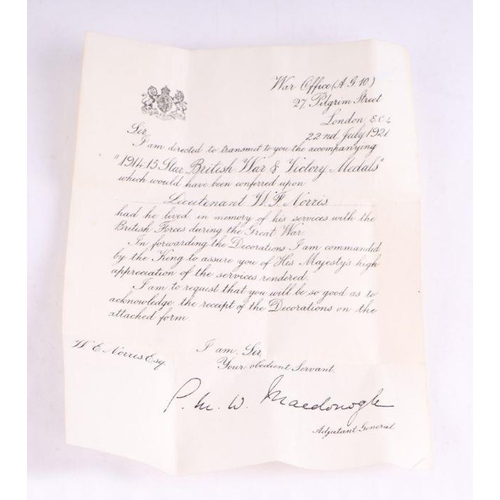 War Office (A.G.10)
27, Pilgrim Street
London, E.C.4
22nd July 1921
Sir,
I am directed to transmit to you the accompanying
"1914-15 Star British War & Victory Medals"
which would have been conferred upon
Lieutenant W. F. Norris
had he lived in memory of his services with the
British Forces during the Great War.
In forwarding the Decorations I am commanded
by the King to assure you of His Majesty's high
appreciation of the services rendered.
I am to request that you will be so good as to
acknowledge the receipt of the Decorations on the
attached form.
I am, Sir,
Your obedient Servant
W. E. Norris Esq
G. M. W. Macdonogh
Adjutant General.